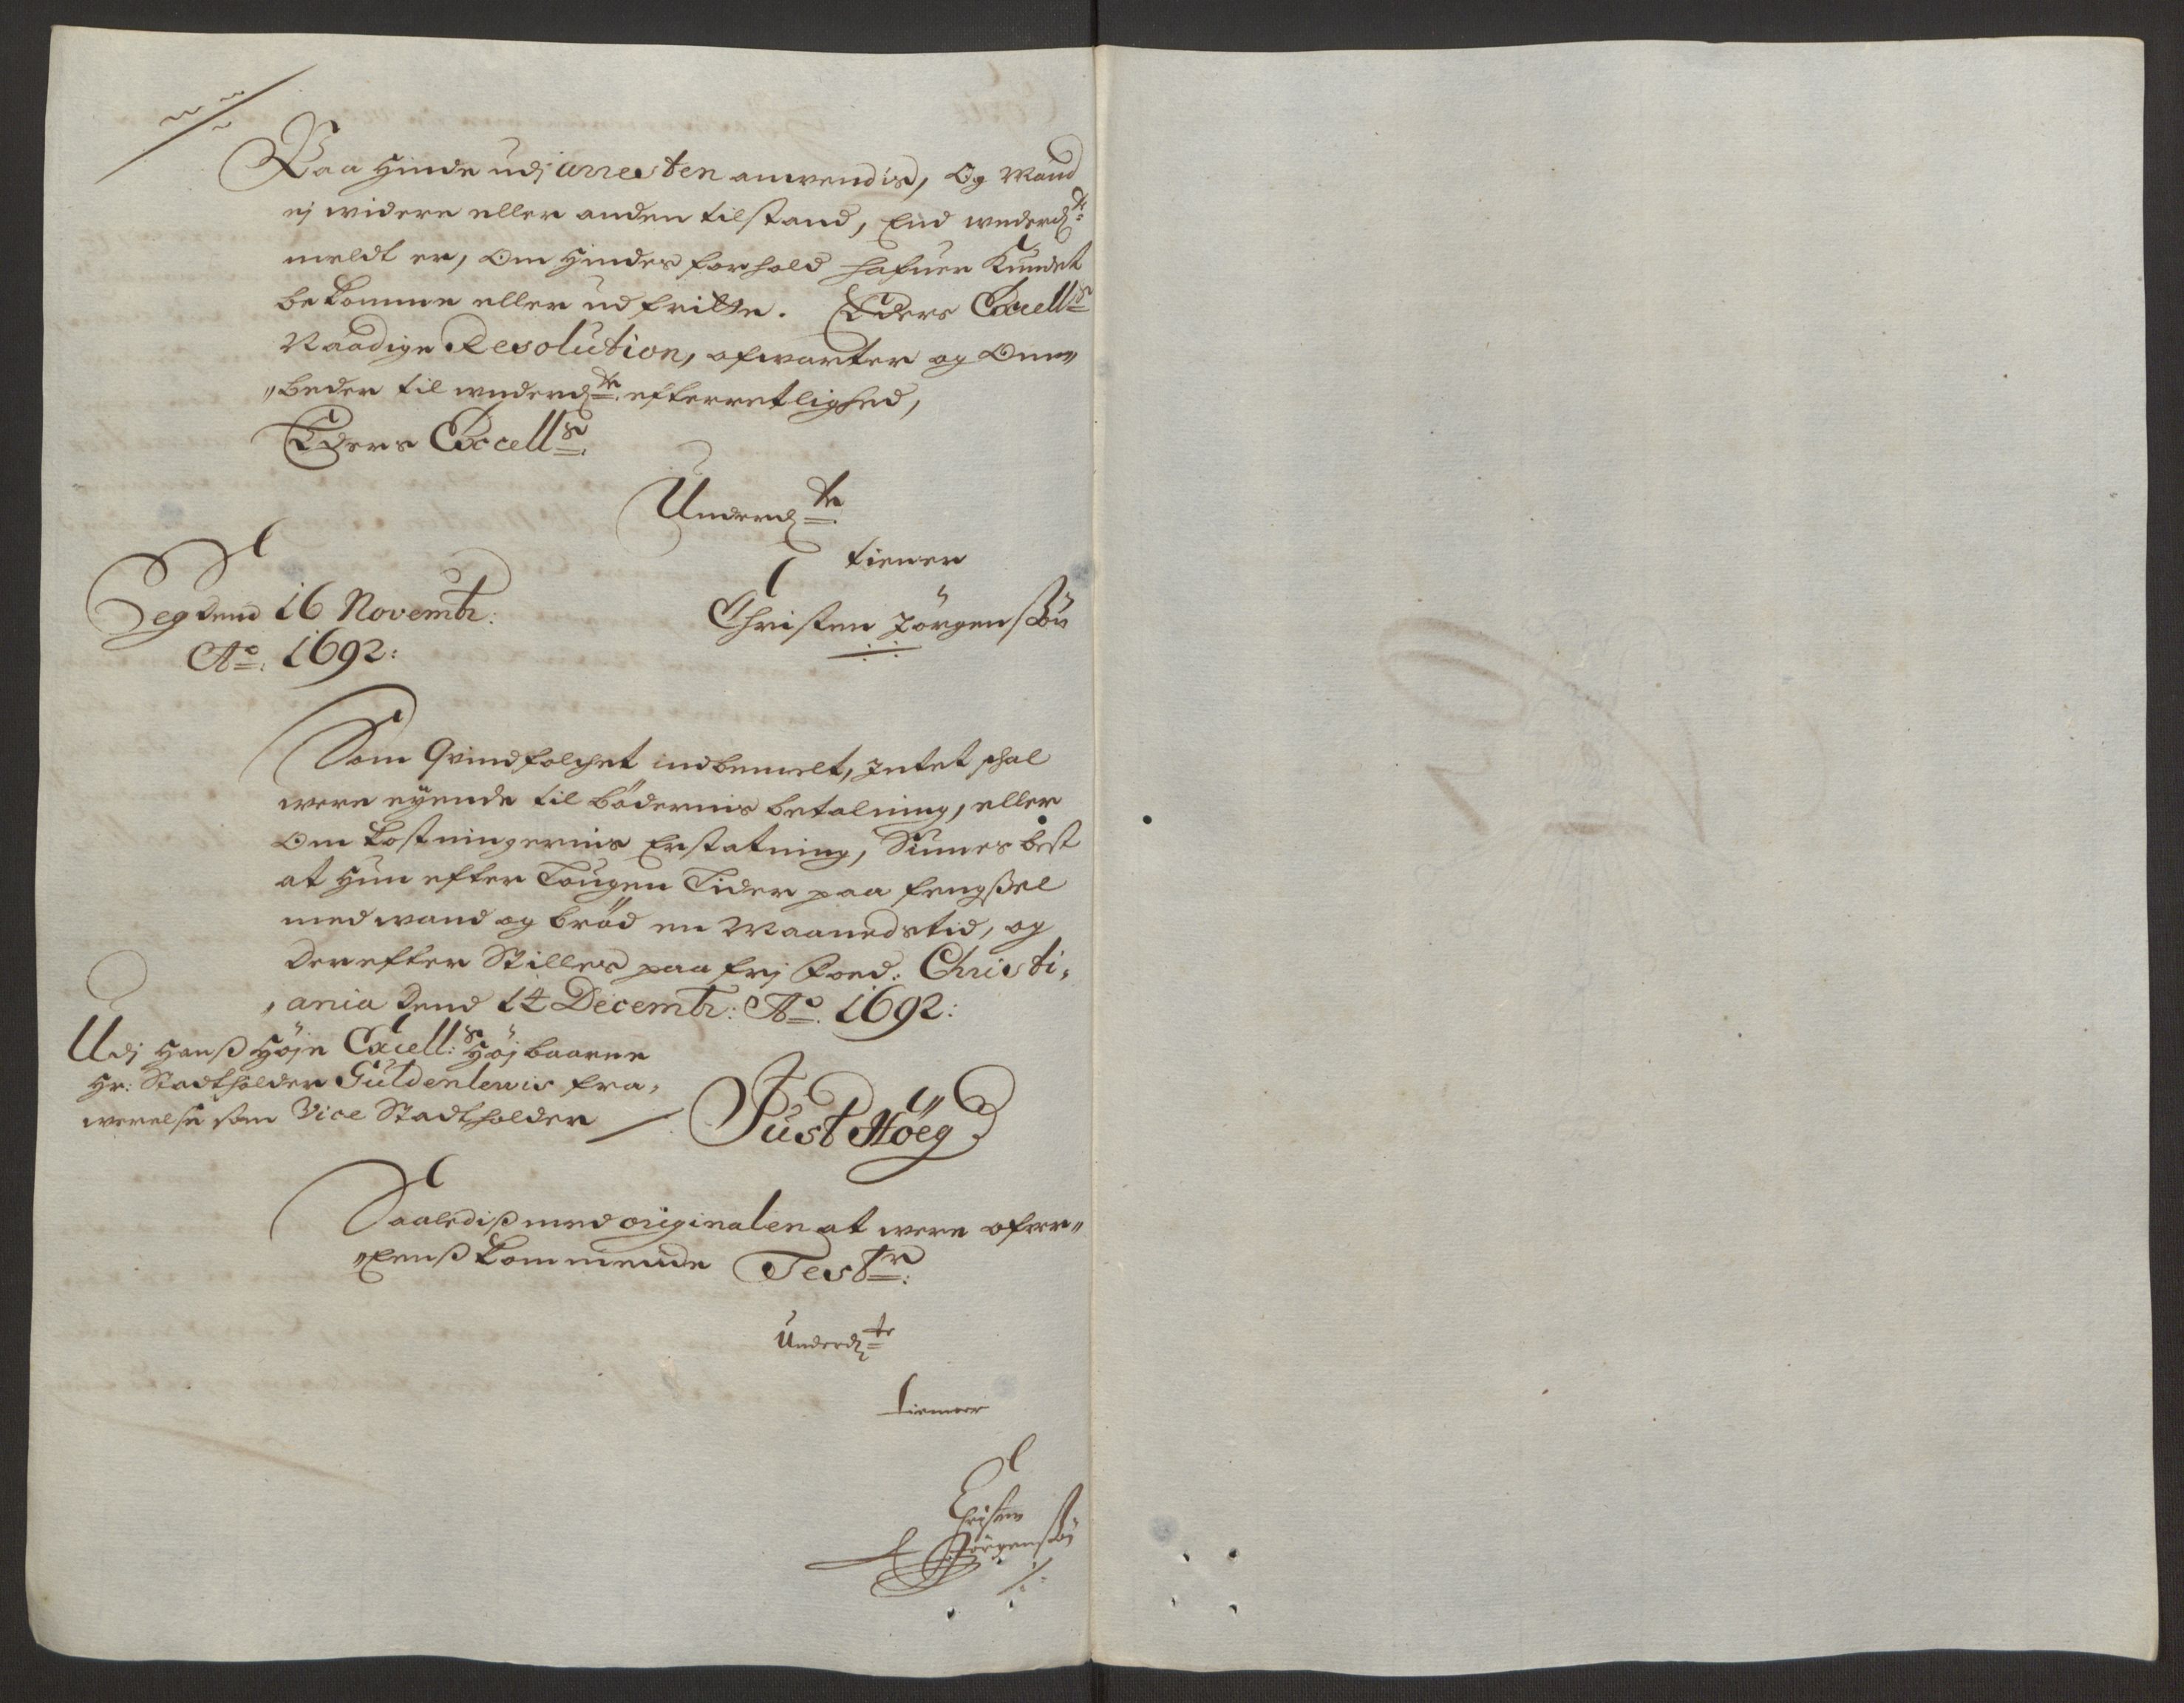 Paa hinde udj arresten anvendis, Og Maud
ej widere eller anden tilstand, End underd:
meldt er, Om hindes forhold hafuer Kundet
bekomme eller udfritte. Eders Excell:
Naadige Resolution, afwarter og Om„
„beder til underd: efterretlighed,
Eders Excell:
Underd:
tiener
Christen Jörgenssön
dend 16 Novembr:
Ao: 1692:
Som Qvindfolchet indbemelt, Intet schal
were eÿende til bödernis betalning, eller
Omkostningernis Erstatning, Siunes best
at hun efter Lougen Lider paa fengssel
med wand og bröd en Maanedstid, og
derefter Stilles paa frj foed. Christi„
„ania dend 14 Decembr: Ao. 1692:
Udj Hans Höje Excell: Höjbaarne
Hr: Stadtholder Güldenlewis fra„
werelse som Vice Stadtholder
Just Höeg
Saaledis med originalen at were ofuer„
„Eens kommende Test:
Underd:
tiener
Christen
Jörgensön